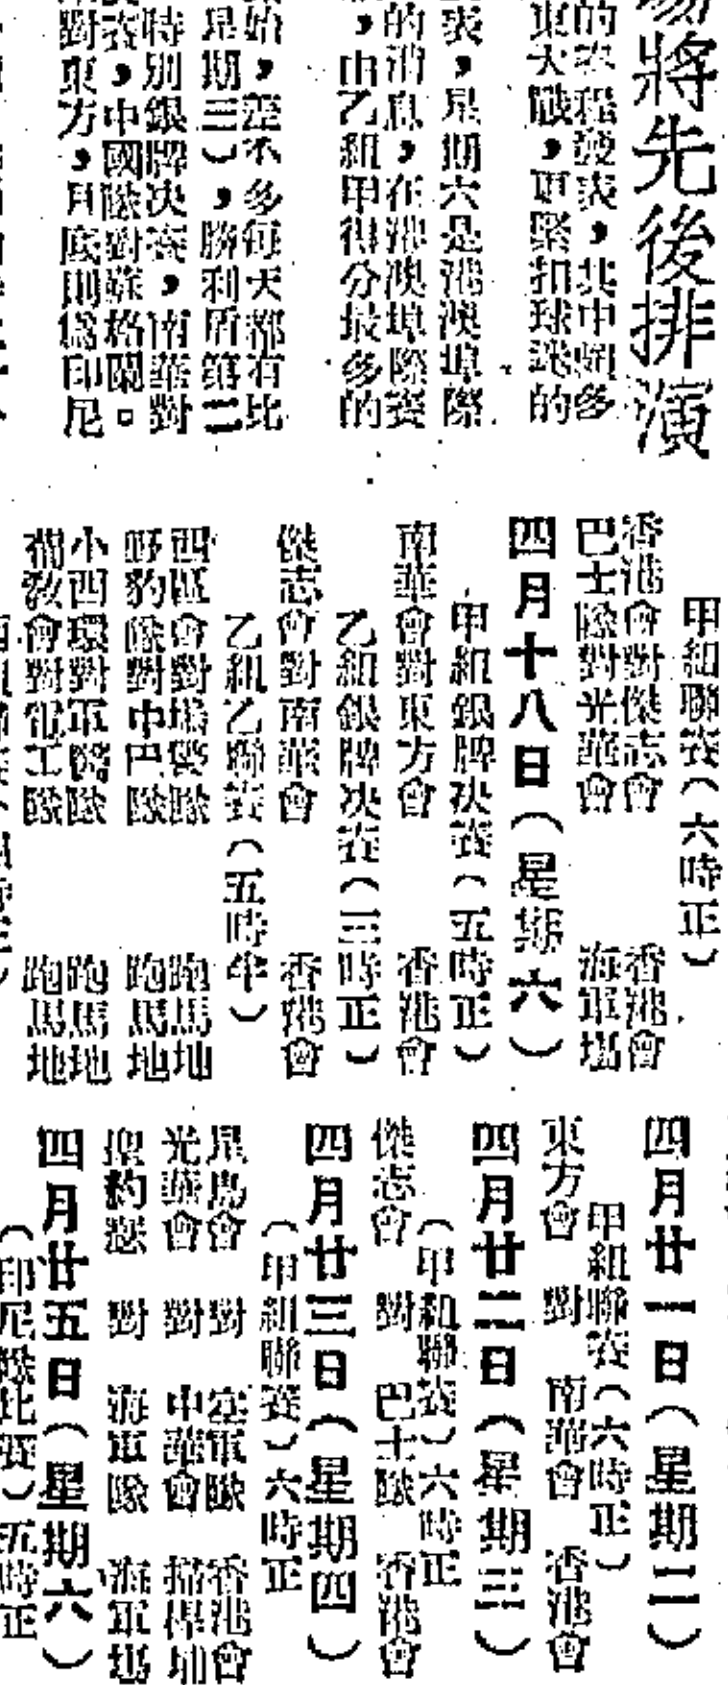 將先後排演
的表程發表，其中頗多
東大戰，更緊扣球迷的
表，星期六是港澳埠際
的消息，在港澳埠際賽
，由乙組甲得分最多的
始，差不多每天都有比
星期三），勝利盾第二
特別銀牌決賽，南華對
賽，中國隊對蘇格蘭。
對東方，月底則爲印尼
甲組聯賽（六時正）
香港會對傑志會　香港會
巴士隊對光華會　海軍塲
四月十八日（星期六）
甲組銀牌决賽（五時正）
南華會對東方會　香港會
乙組銀牌决賽（三時正）
傑志會對南華會　香港會
乙組乙聯賽（五時半）
西區會對塲警隊　跑馬地
野豹隊對中巴隊　跑馬地
小西環對軍醫隊　跑馬地
會對電工隊　跑馬地
四月廿一日（星期二）
甲組聯賽（六時正）
東方會　對　南華會　香港會
四月廿二日（星期三）
（甲組聯賽）六時正
傑志會　對　巴士隊　香港會
四月廿三日（星期四）
（甲組聯賽）六時正
星島會　對　陸軍隊　香港會
光華會　對　中華會　掃桿埔
聖約瑟　對　海軍隊　海軍塲
四月廿五日（星期六）
（印尼隊比賽）五時正